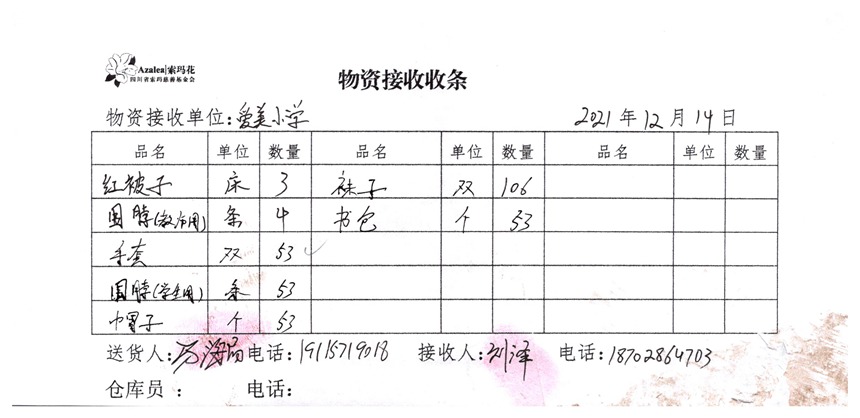 Azalea|索玛花
四川省索玛慈善基金会
物资接收收条
物资接收单位:爱美小学 2021年12月14日
品名 单位 数量 品名 单位 数量 品名 单位 数量
红被子 床 3 袜子 双 106
围脖(教师用) 条 4 书包 个 53
手套 双 53
围脖(学生用) 条 53
帽子 个 53
送货人: 电话:19115719018 接收人:刘泽 电话:18702864703
仓库员 : 电话: